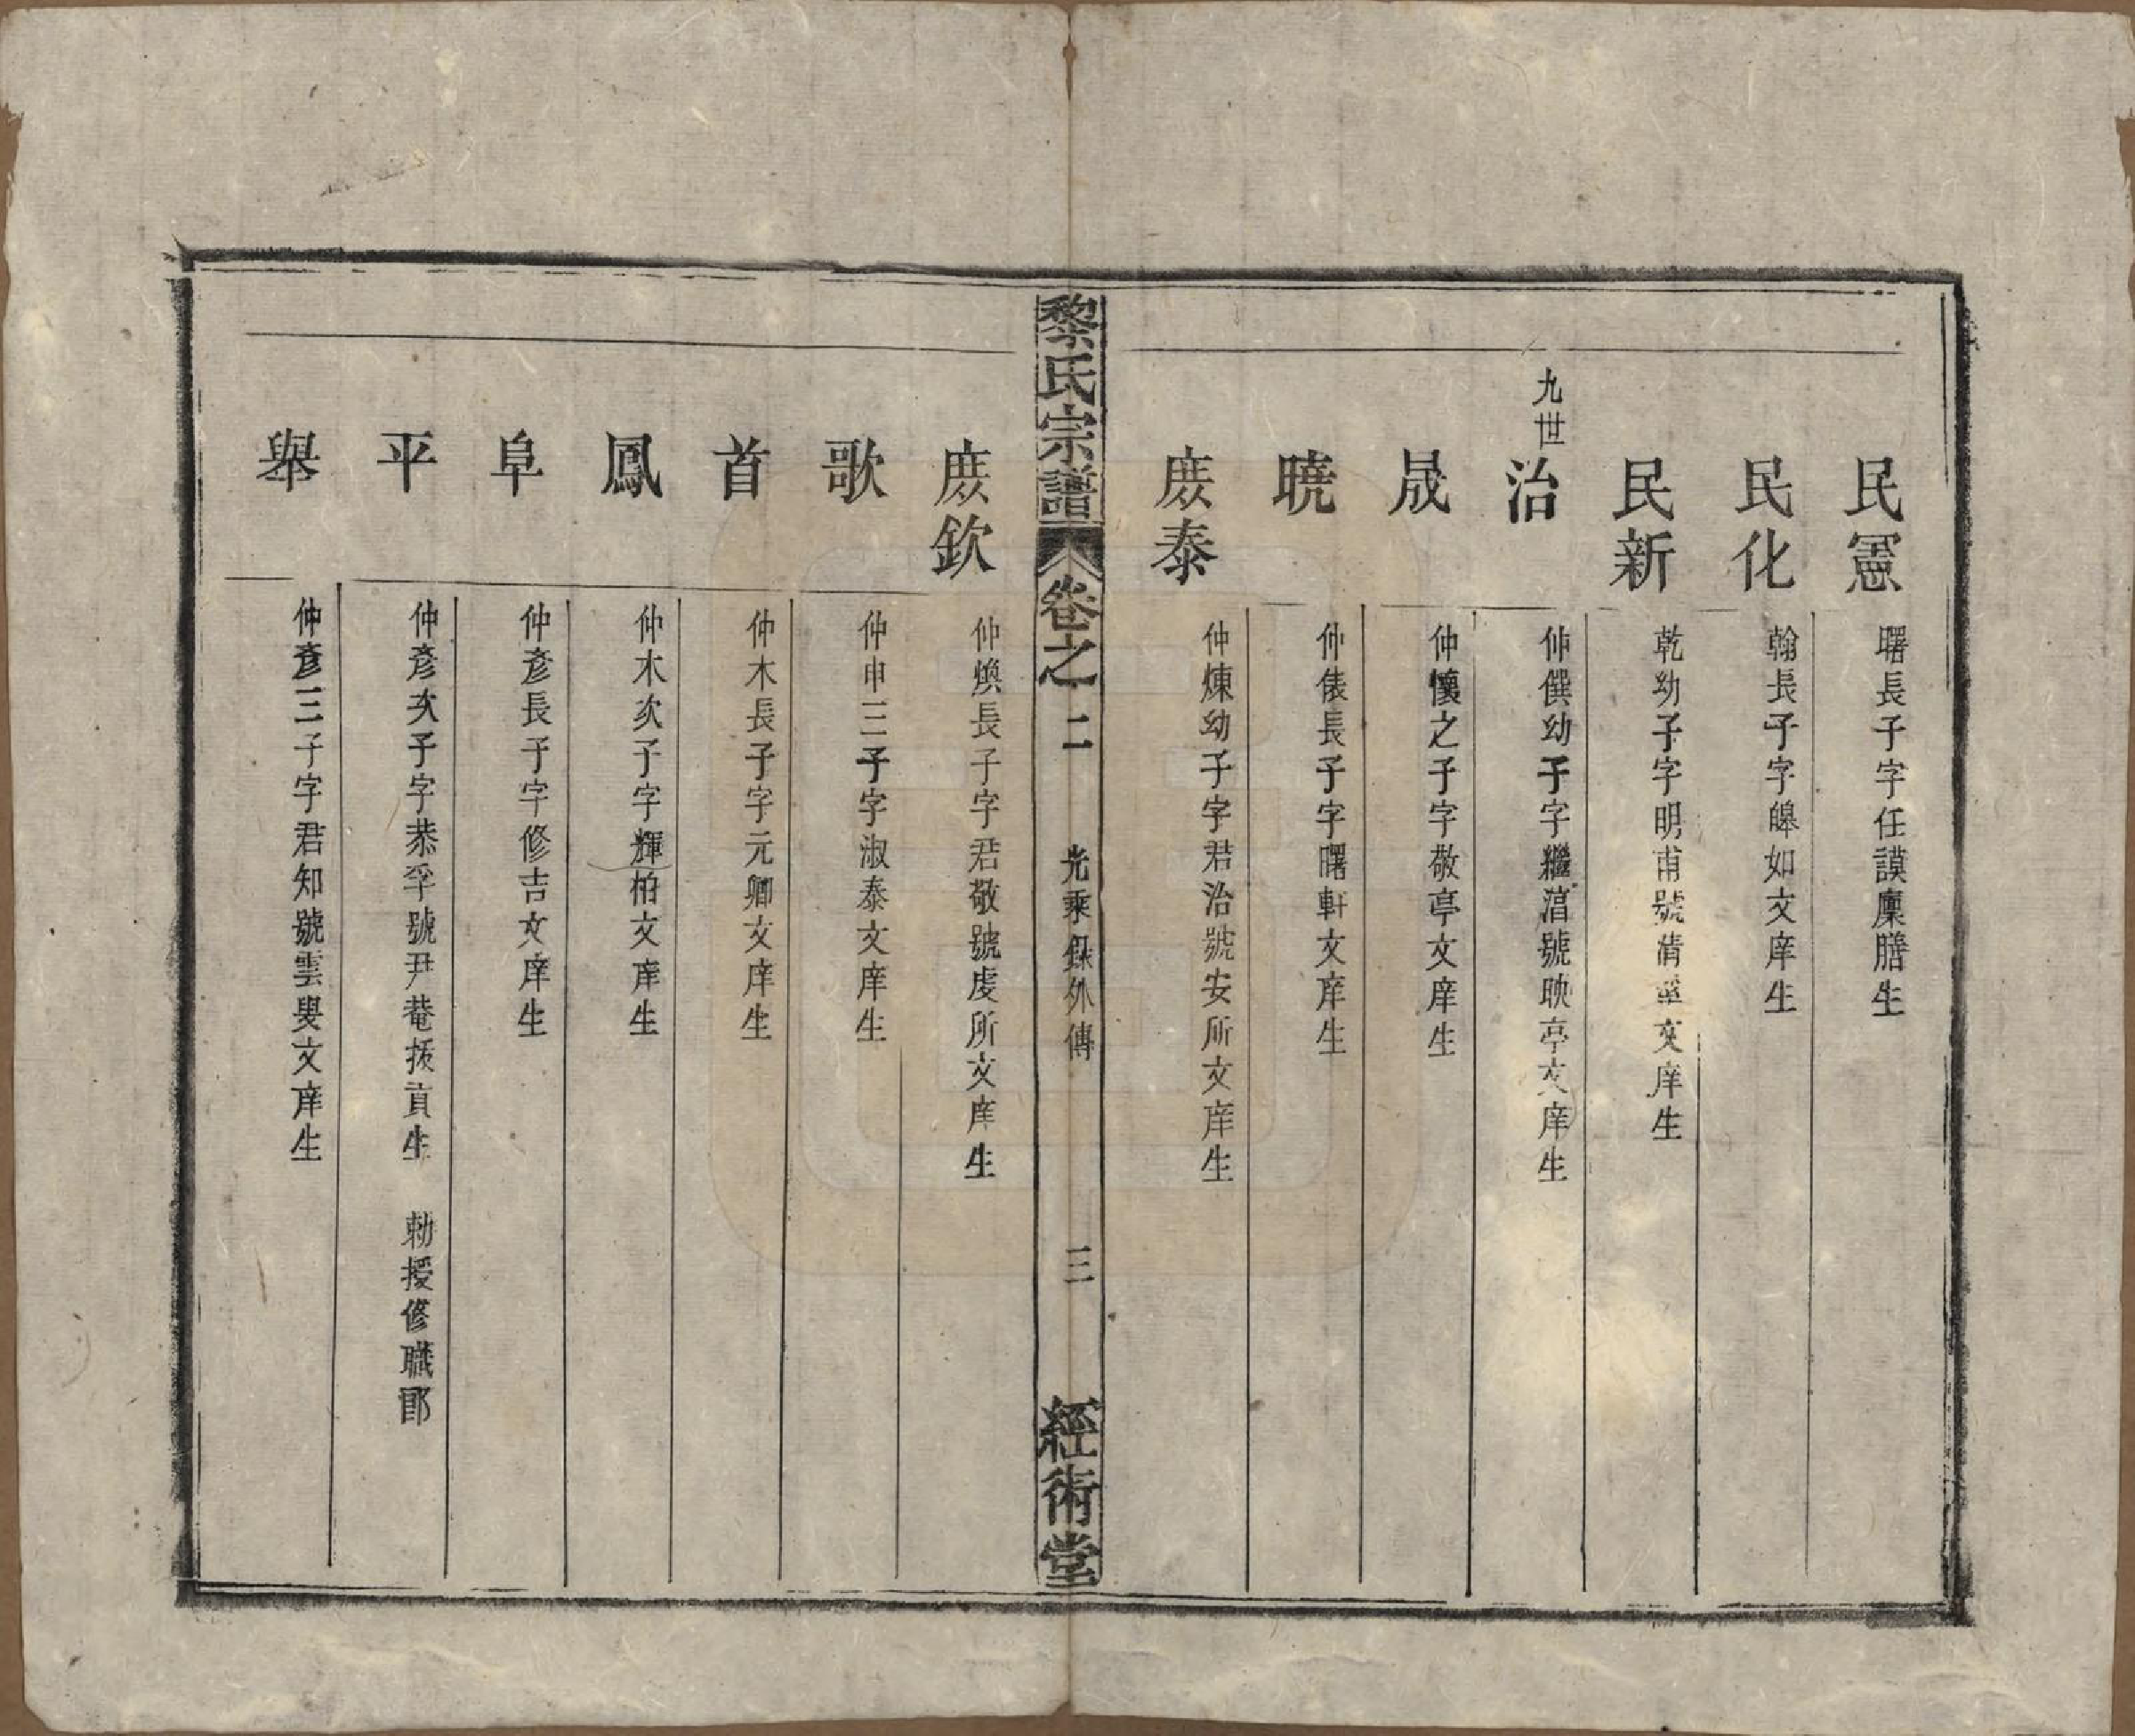 民憲
曙長子字任謨廩膳生
民化
翰長子字皞如文庠生
民新
乾幼子字明甫號清 文庠生
九世
治
仲僎幼子字繼滀號映亭文庠生
晟
仲懷之子字敬亭文庠生
曉
仲俵長子字曙軒文庠生
庶泰
仲煉幼子字君治號安所文庠生
黎氏宗譜 卷之二 光乘錄外傳 三 經術堂
庶欽
仲煥長子字君敬號虔所文庠生
歌
仲申三子字淑泰文庠生
首
仲木長子字元卿文庠生
鳳
仲木次子字輝柏文庠生
阜
仲彥長子字修吉文庠生
平
仲彥次子字恭孚號尹菴拔貢生 勅授修職郎
舉
仲彥三子字君知號雲叟文庠生